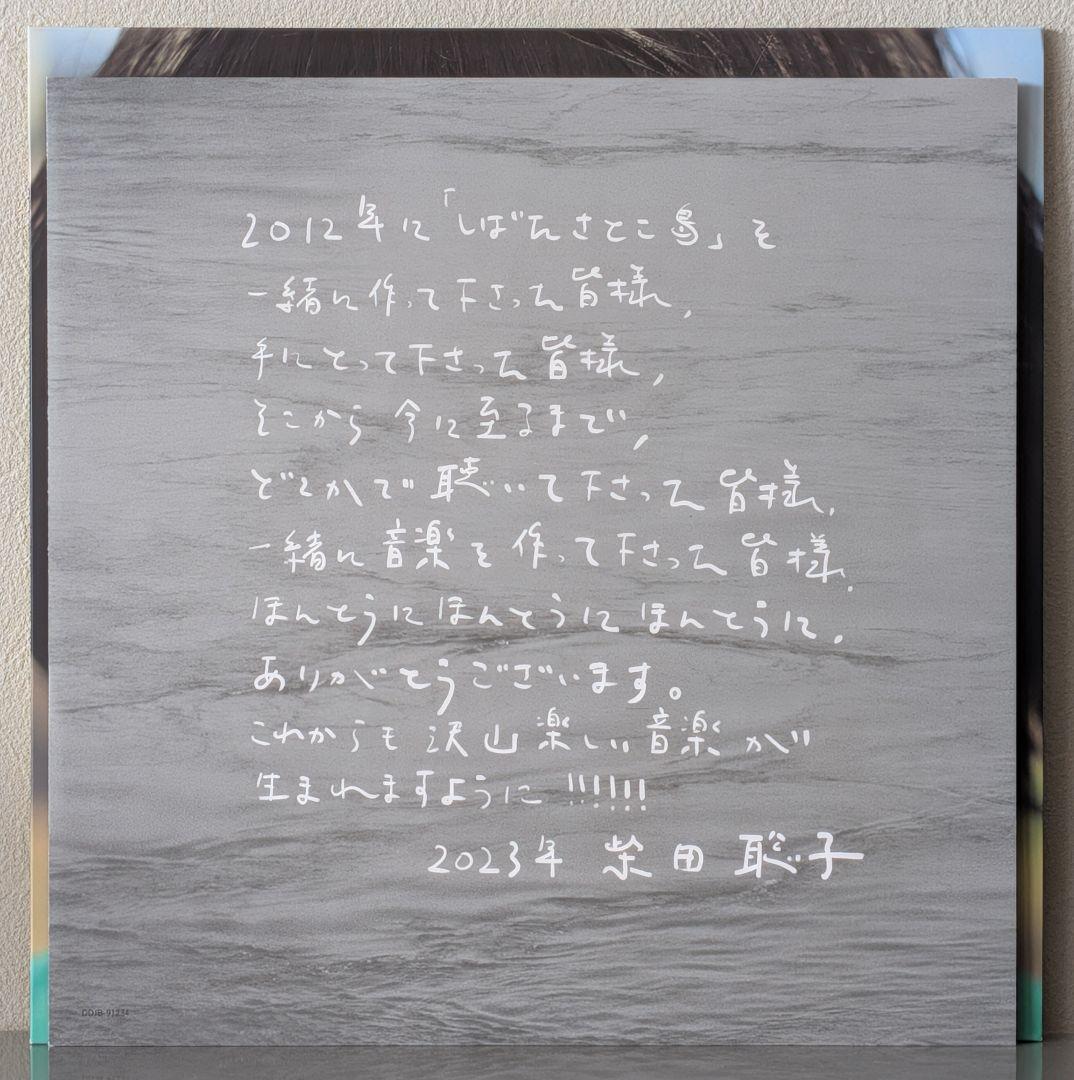 2012年に「しばたさとこ島」を
一緒に作って下さった皆様,
手にとって下さった皆様,
そこから今に至るまで,
どこかで聴いて下さった皆様,
一緒に音楽を作って下さった皆様,
ほんとうにほんとうにほんとうに,
ありがとうございます。
これからも沢山楽しい音楽が
生まれますように!!!!!!
2023年 柴田聡子
DDJB-91234